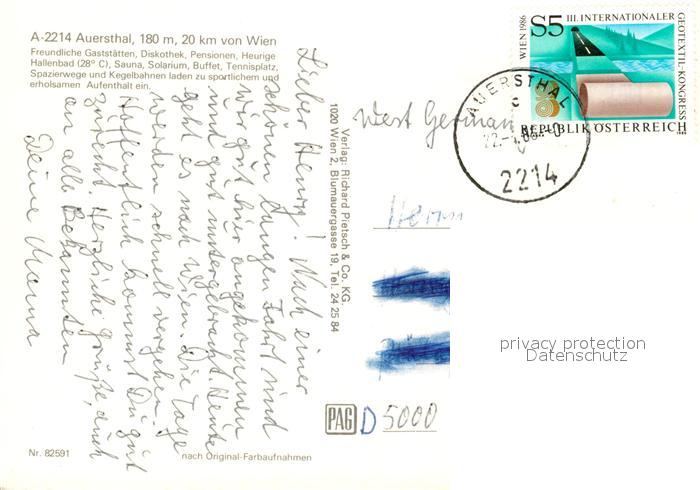 A-2214 Auersthal, 180 m, 20 km von Wien
Freundliche Gaststätten, Diskothek, Pensionen, Heurige
Hallenbad (28° C), Sauna, Solarium, Buffet, Tennisplatz,
Spazierwege und Kegelbahnen laden zu sportlichem und
erholsamen Aufenthalt ein.
Lieber Henry! Nach einer
schönen langen Fahrt sind
wir gut hier angekommen
und gut untergebracht. Heute
geht es nach Wien. Die Tage
werden schnell vergehen.
Hoffentlich kommst Du gut
zurecht. Herzliche Grüße, auch
an alle Bekannten
Deine Mama
Verlag: Richard Pietsch & Co. KG.
1020 Wien 2, Blumauergasse 19, Tel. 24 25 84
West German
Herrn
PAG
D 5000
Nr. 82591
nach Original-Farbaufnahmen
S5
III. INTERNATIONALER
GEOTEXTIL-KONGRESS
WIEN 1986
REPUBLIK ÖSTERREICH
AUERSTHAL
2214
privacy protection
Datenschutz